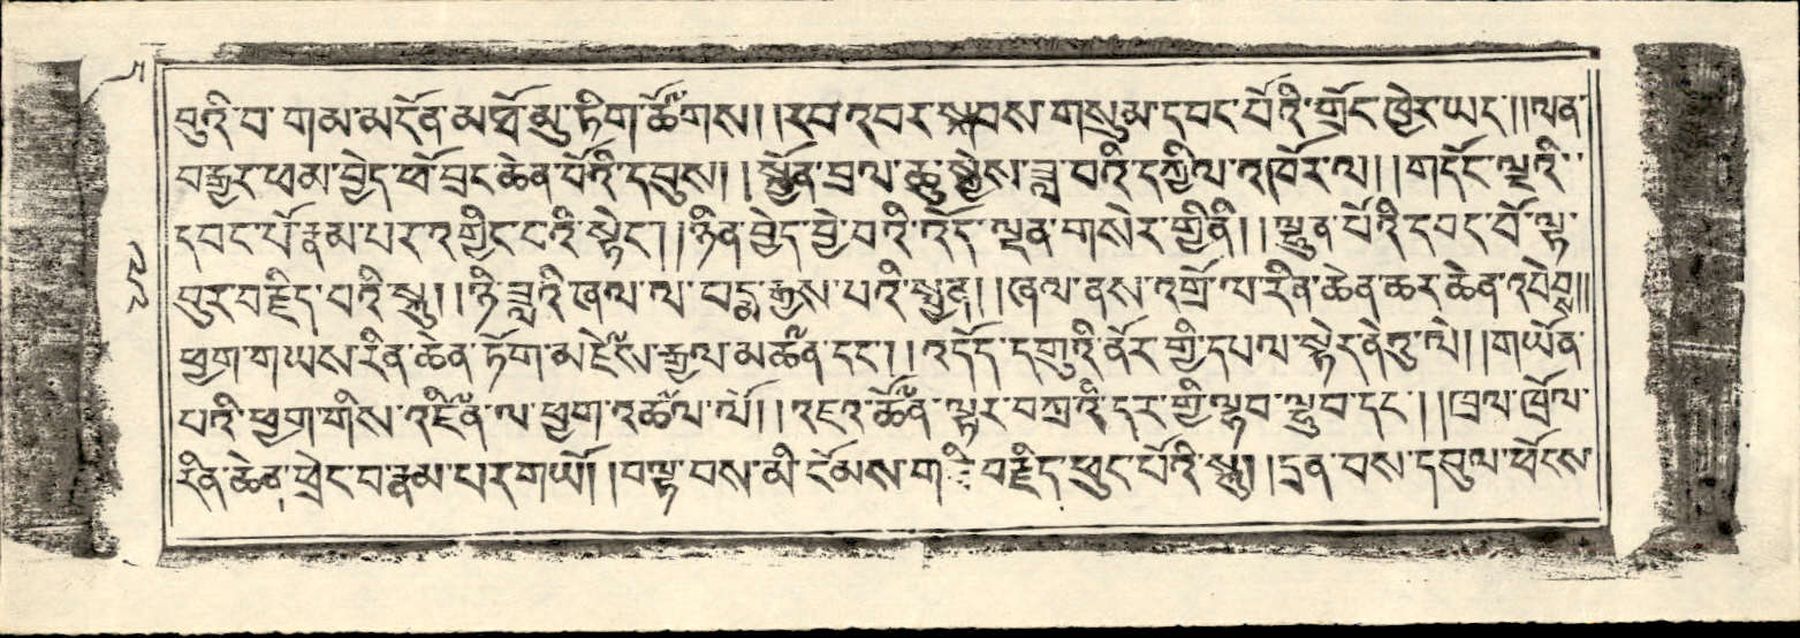 བུའི་བ་གམ་མངོན་མཐོ་མུ་ཏིག་ཚོགས། །རབ་འབར་སྐབས་གསུམ་དབང་པོའི་གྲོང་ཁྱེར་ཡང་། །ཡན་
བརྒྱར་ཕམ་བྱེད་ཕོ་བྲང་ཆེན་པོའི་དབུས། །སྐྱོན་བྲལ་ཆུ་སྐྱེས་ཟླ་བའི་དཀྱིལ་འཁོར་ལ། །གདོང་ལྔའི་
དབང་པོ་རྣམ་པར་འགྱིང་བའི་སྟེང་། །ཉིན་བྱེད་བྱེ་བའི་འོད་ལྡན་གསེར་གྱི་ནི། །ལྷུན་པོའི་དབང་པོ་ལྟ་
བུར་བརྗིད་པའི་སྐུ། །ཉི་ཟླའི་ཞལ་ལ་པདྨ་རྒྱས་པའི་སྤྱན། །ཞལ་ནས་འགྲོ་ལ་རིན་ཆེན་ཆར་ཆེན་འབེབས།།
ཕྱག་གཡས་རིན་ཆེན་ཏོག་མཛེས་རྒྱལ་མཚན་དང་། །འདོད་དགུའི་ནོར་གྱི་དཔལ་སྟེར་ནེའུ་ལེ། །གཡོན་
པའི་ཕྱག་གིས་འཛིན་ལ་ཕྱག་འཚལ་ལོ། །འཇའ་ཚོན་ལྟར་བཀྲའི་དར་གྱི་ལྷབ་ལྷུབ་དང་། །ཁྲལ་ཁྲོལ་
རིན་ཆེན་ཕྲེང་བ་རྣམ་པར་གཡོ། །བལྟ་བས་མི་ངོམས་ག ི་བརྗིད་ཕུང་པོའི་སྐུ། །དྲན་པས་དབུལ་ཕོངས་